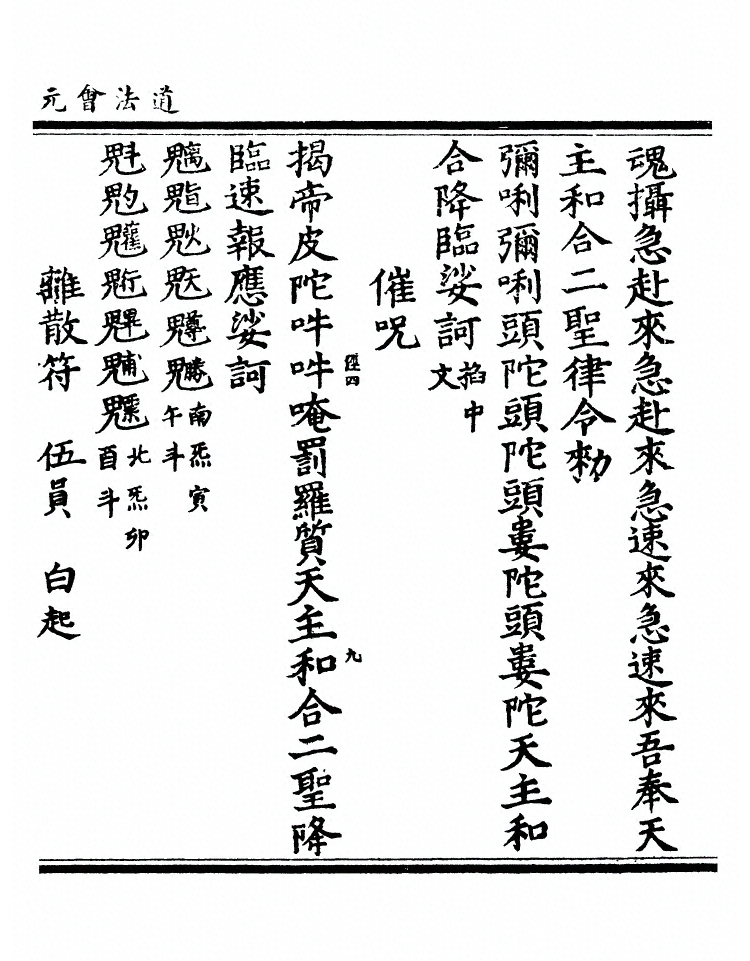 道法會元
魂攝急赴來急赴來急速來急速來吾奉天
主和合二聖律令勑
彌唎彌唎頭陀頭陀頭婁陀頭婁陀天主和
合降臨娑訶搯中文
催咒
徑四
九
揭帝皮陀吽吽唵罰羅質天主和合二聖降
臨速報應娑訶
南炁寅午斗
魁魡北炁卯酉斗
離散符 伍員 白起